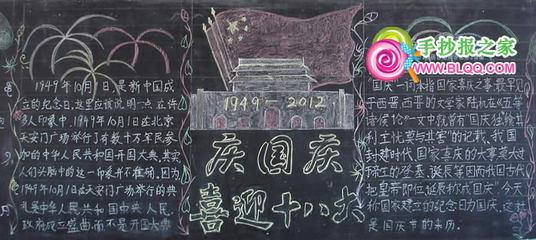 1949年10月1日,是新中国成
立的纪念日。这里应该说明一点,在许
多人印象中,1949年10月1日在北京
天安门广场举行了有数十万军民参
加的中华人民共和国开国大典。其实,
人们头脑中的这一印象并不准确。因为
1949年10月1日在天安门广场举行的典
礼是中华人民共和国中央人民
政府成立盛曲,而不是开国大典
1949—2012
庆国庆
喜迎十八大
手抄报之家
WWW.BLQQ.COM
"国庆"一词,本指国家喜庆之事,最早见
于西晋。西晋的文学家陆机在《五等
诸侯论》一文中就曾有"国庆独飨其
利,主忧莫与其害"的记载、我国
封建时代、国家喜庆的大事,莫大过
于帝王的登基、诞辰等。因而我国古代
把皇帝即位、诞辰称成"国庆"。今天
称国家建立的纪念日为国庆。这就
是国庆节的来历。